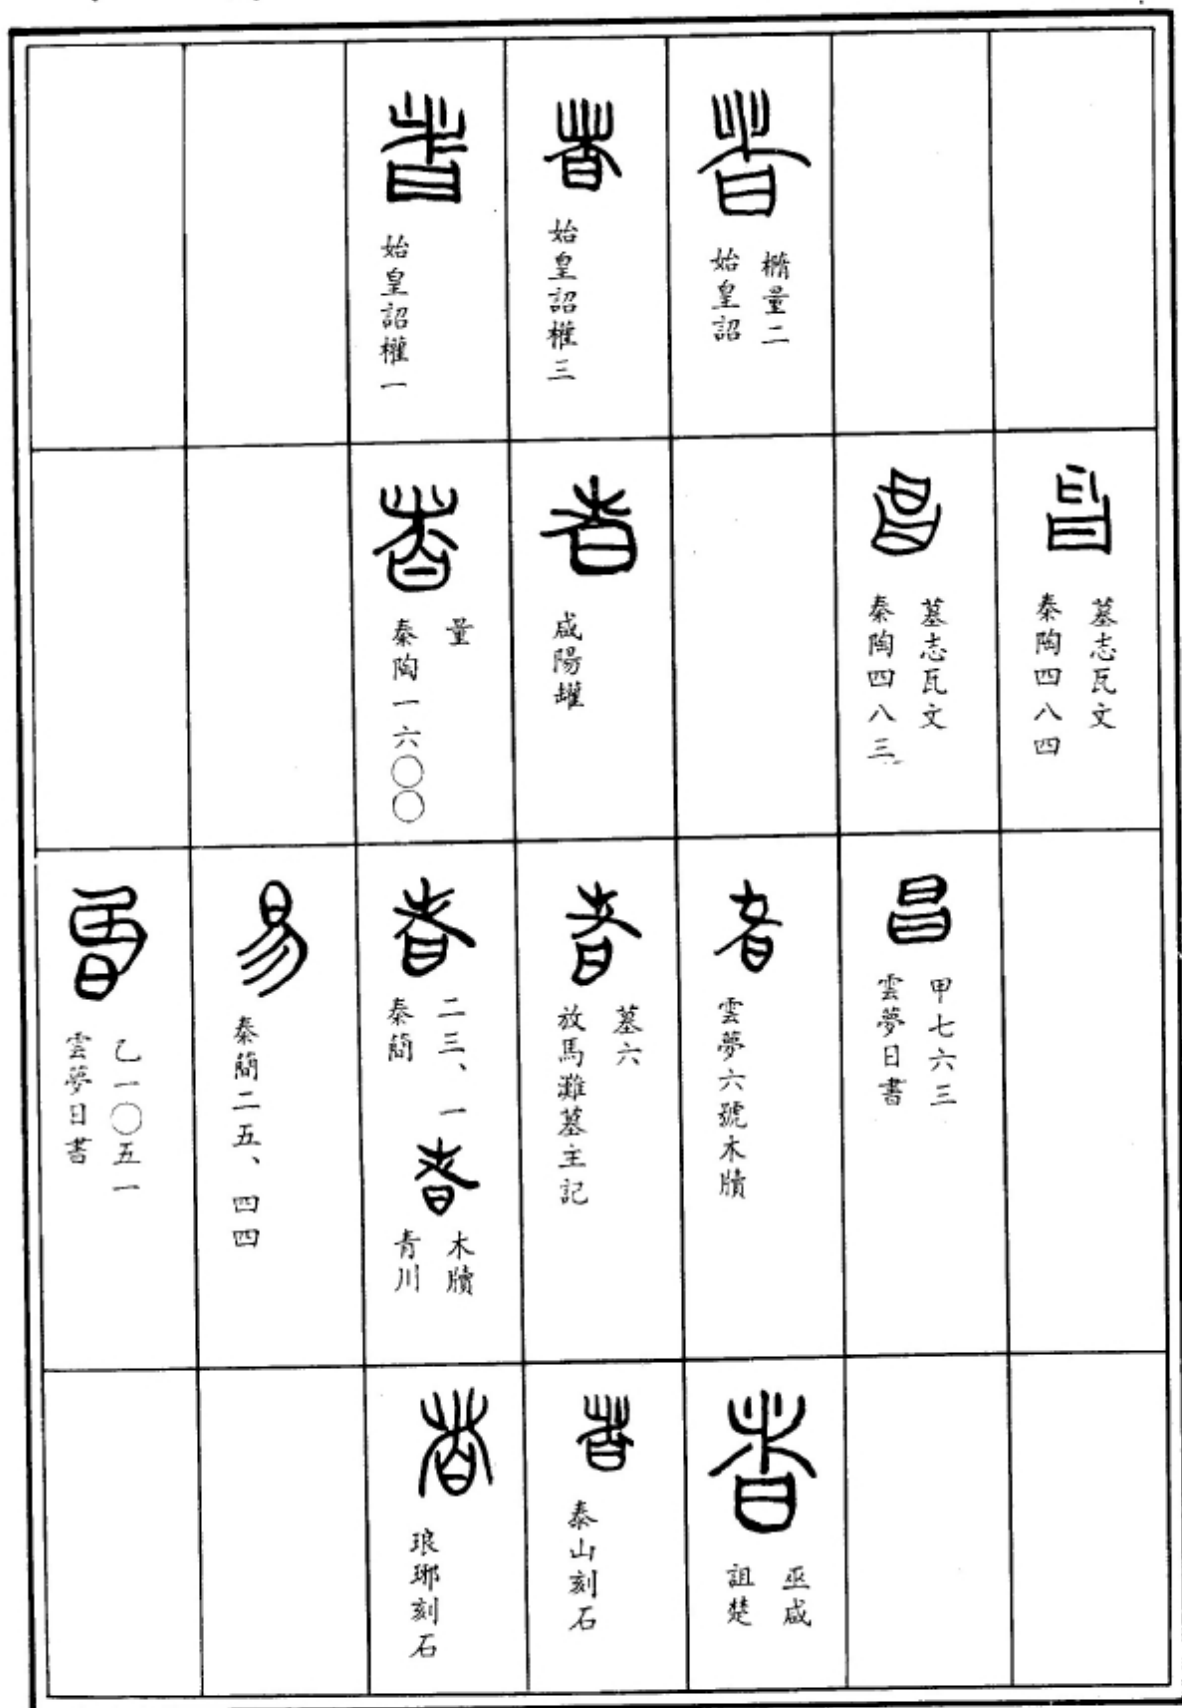 者
始皇詔權一
者
始皇詔權三
者
始皇詔
橢量二
者
秦陶一六〇〇
量
者
咸陽罐
昌
秦陶四八三
墓志瓦文
昌
秦陶四八四
墓志瓦文
雲夢日書
乙一〇五一
易
秦簡二五、四四
者
秦簡
二三、一
者
青川
木牘
者
放馬灘墓主記
墓六
者
雲夢六號木牘
昌
雲夢日書
甲七六三
者
琅琊刻石
者
泰山刻石
者
詛楚
巫咸